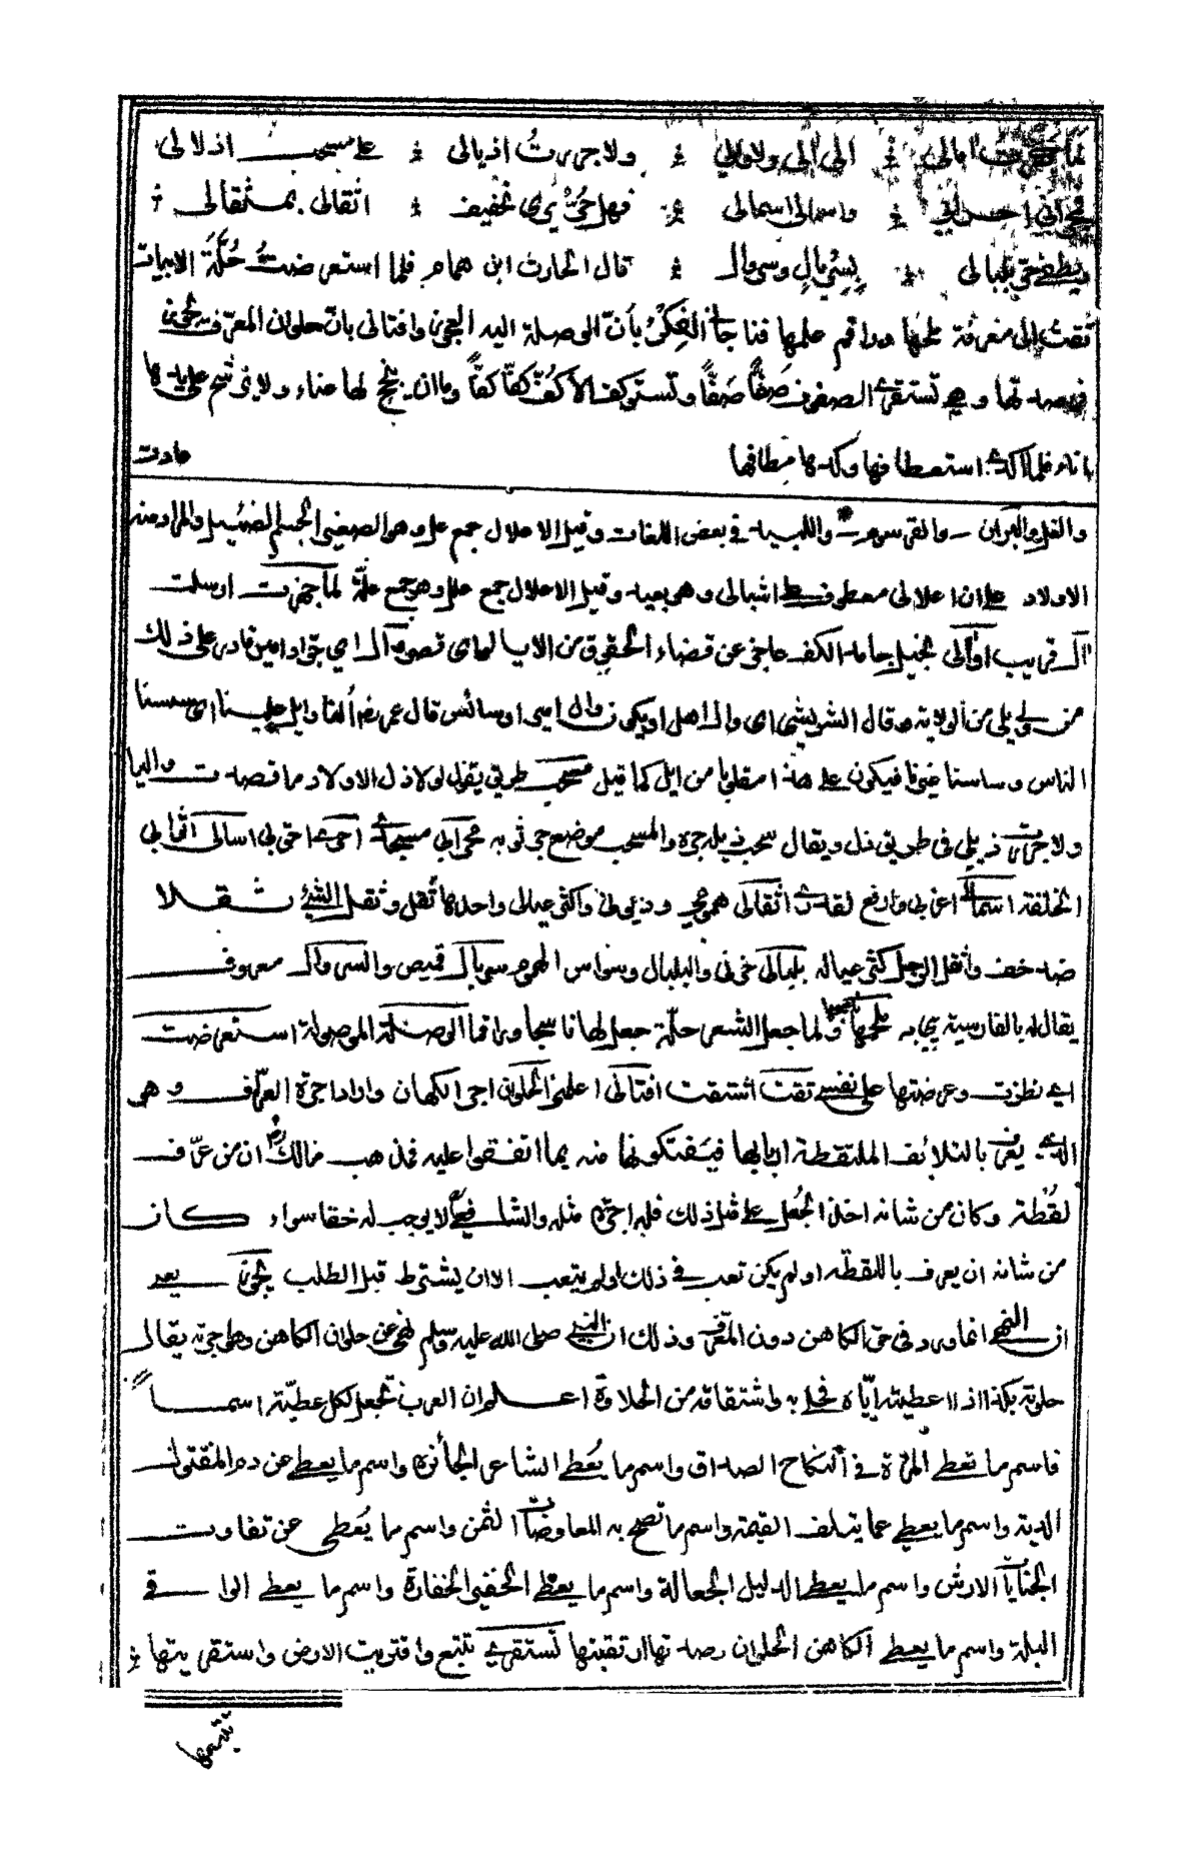 لما جهزت امالى الى آلى ولا والي ولا جررت اذيالى على مسحب اذلالى
محرابى احرى بى واسمالى اسمى لى فهل حرّ يرى تخفيف اثقالى بمثقالى
ويطفى حرّ بلبالى بسربال وسروال قال الحارث ابن همام فلما استعرضت حُلَّةَ الابيات
تقت الى معرفة ملحمها وراقم علمها فناجانى الفكرُ بأنّ الوصلة اليه العجوز وافتانى بانّ حلوان المعرّف يجوز
فرصدتها وهى تستقرى الصفوف صَفًّا صَفًّا وتستوكف الاكُفّ كفًّا كفًّا وما ان ينجح لها عناء ولا يرشح على يدها
اناء فلما اكدى استعطافها وكدها مطافها
عادت
والقمل فى بعض اللغات وقيل الاعلال جمع عل وهو الصغير الجسم الضئيل والمراد منه
الاولاد على ان اعلالى معطوف على اشبالى وهو بعيد وقيل الاعلال جمع علل وهو جمع علّة لما جهزت ارسلت
آل قريب اوآلى بخيل جامد الكف عاجز عن قضاء الحقوق من الايا
من ولى يلى من الولاية وقال الشريشى اى وال اهل او يكون وال امير او سائس قال عمر رضـ ألنا وايل علينا اى سسنا
الناس وساسنا غيرنا فيكون على هذا مقلوبا من ايل كما قيل مسحب طريق يقول لولا ذل الاولاد ما قصدت واليا
ولا جررت ذيلى فى طريق ذل ويقال سحب ذيله جره والمسحب موضع جر ثوبه محرابى مسجدى احرى احق بى اسمالى اثوابى
الخلقة اسمى لى اعز لى وارفع لقدرى اثقالى همومى وديونى وكثرة عيالى واحدها ثقل وثقل الشئ ثقلا
ضد خف واثقل الرجل كثر عياله بلبالى حزنى والبلبال وسواس الهموم سربال قميص والسروال معروف
يقال له بالفارسية ملحمها ناسجها ولما جعل الشعر حلّة جعل لها ناسجا وراقما الوصلة الموصولة استعرضت
اى نظرت وعرضتها على نفسى تقت اشتقت افتانى اعلمنى الحلوان اجر الكهان واراد اجرة العرّاف وهو
الذى يعرف بالتلائف الملتقطة اربابها فيفتكونها منه بما اتفقوا عليه فذهب مالك رضـ ان من عرّف
لقطة وكان من شانه اخذ الجعل على مثل ذلك فله اجرة مثله والشافعى لا يوجب له حقا سواء كان
من شانه ان يعرف باللقطة او لم يكن تعب فى ذلك او لم يتعب الا ان يشترط قبل الطلب يجوز يعد
ان النهى انما ورد فى حق الكاهن دون المعرّف وذلك ان النبى صلى الله عليه وسلم نهى عن حلوان الكاهن وهو اجرته يقال
حلوته بكذا اذا اعطيته ايّاه فحلى به واشتقاقه من الحلاوة اعلم ان العرب تجعل لكل عطيّة اسما
فاسم ما تعطى المرأة فى النكاح الصداق واسم ما يُعطى الشاعر الجائزة واسم ما يعطى عن دم المقتول
الدية واسم ما يعطى عما يتلف القيمة واسم ما تصح به المعاوضات الثمن واسم ما يُعطى عن تفاوت
الجنايات الارش واسم ما يعطى الدليل الجعالة واسم ما يعطى الخفير الخفارة واسم ما يعطى الراقى
البسلة واسم ما يعطى الكاهن الحلوان رصدتها ارتقبتها تستقرى تتبع واقتريت الارض واستقريتها
تتبعتها